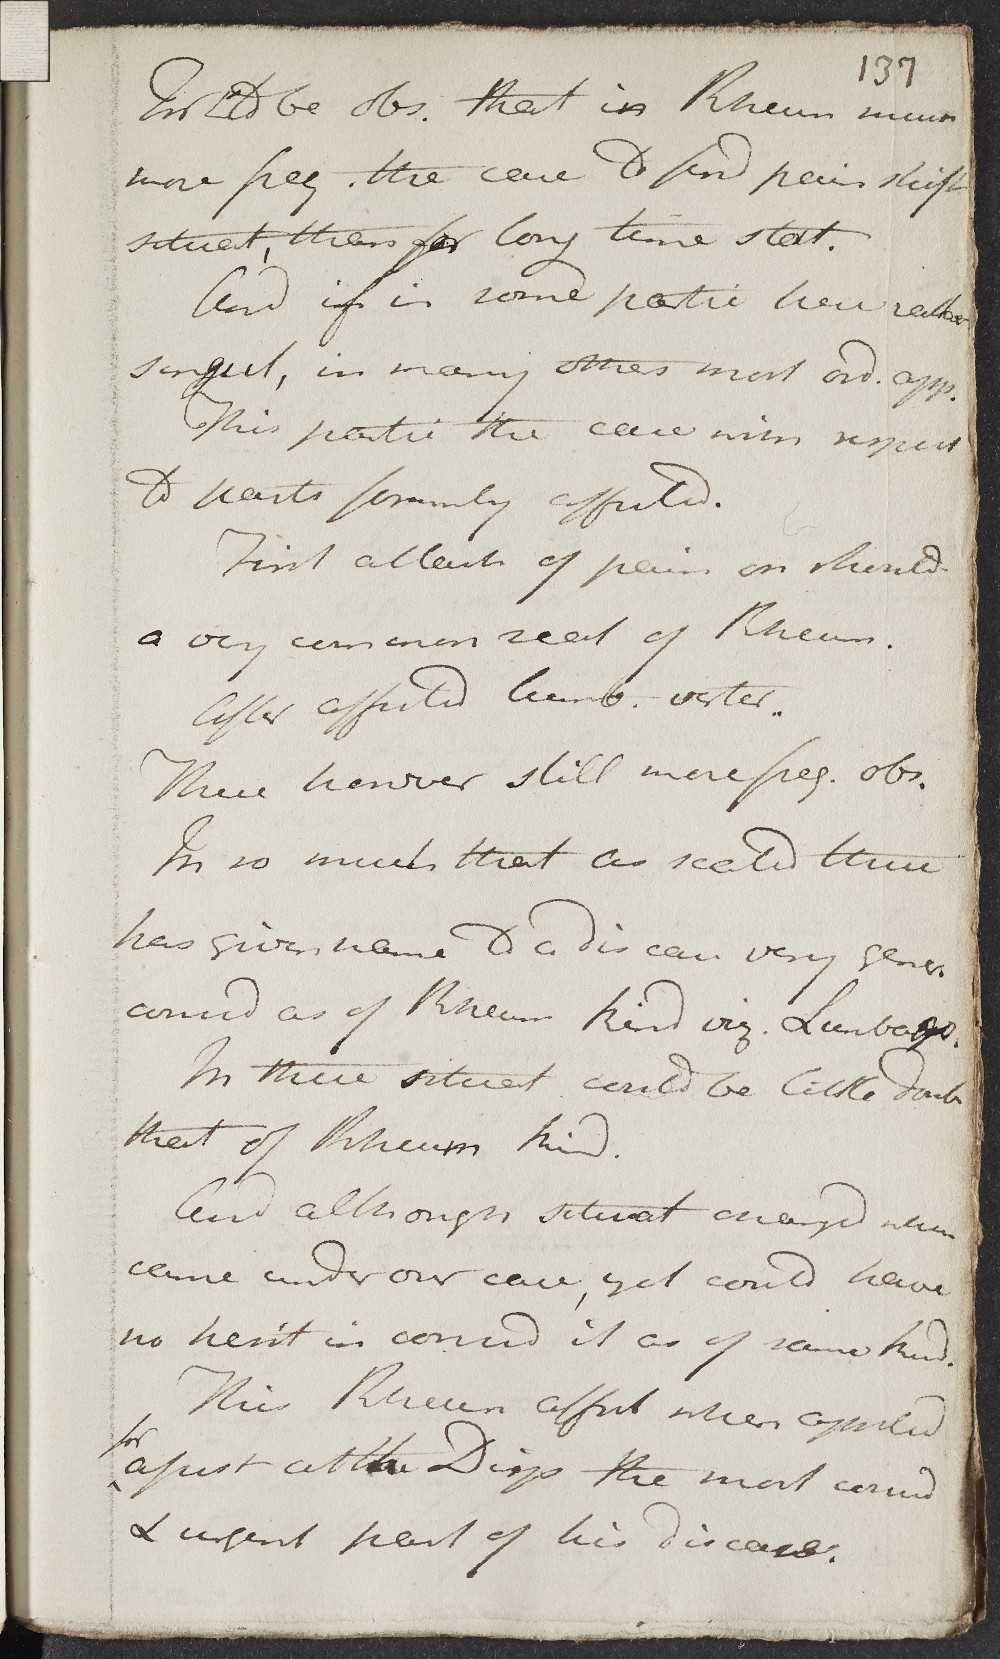 137
For it to be obs. that in Rheum much
more freq. the case to find pain shift
situat, than for long time stat.
And if in some partic here rather
singul, in many others most ord. app.
This partic the case with respect
to parts formerly affected.
First attack of pain on should
a very common seat of Rheum.
After affected lumb. verter.
There however still more freq. obs.
In so much that as seated there
has given name to a disease very gener.
consid as of Rheum kind viz. Lumbago.
In these situat could be little doubt
that of Rheum kind.
And although situat changed when
came under our care, yet could have
no hesit in consid it as of same kind.
This Rheum affect when applied
for
a first at the Disp the most consid
& urgent part of his disease.